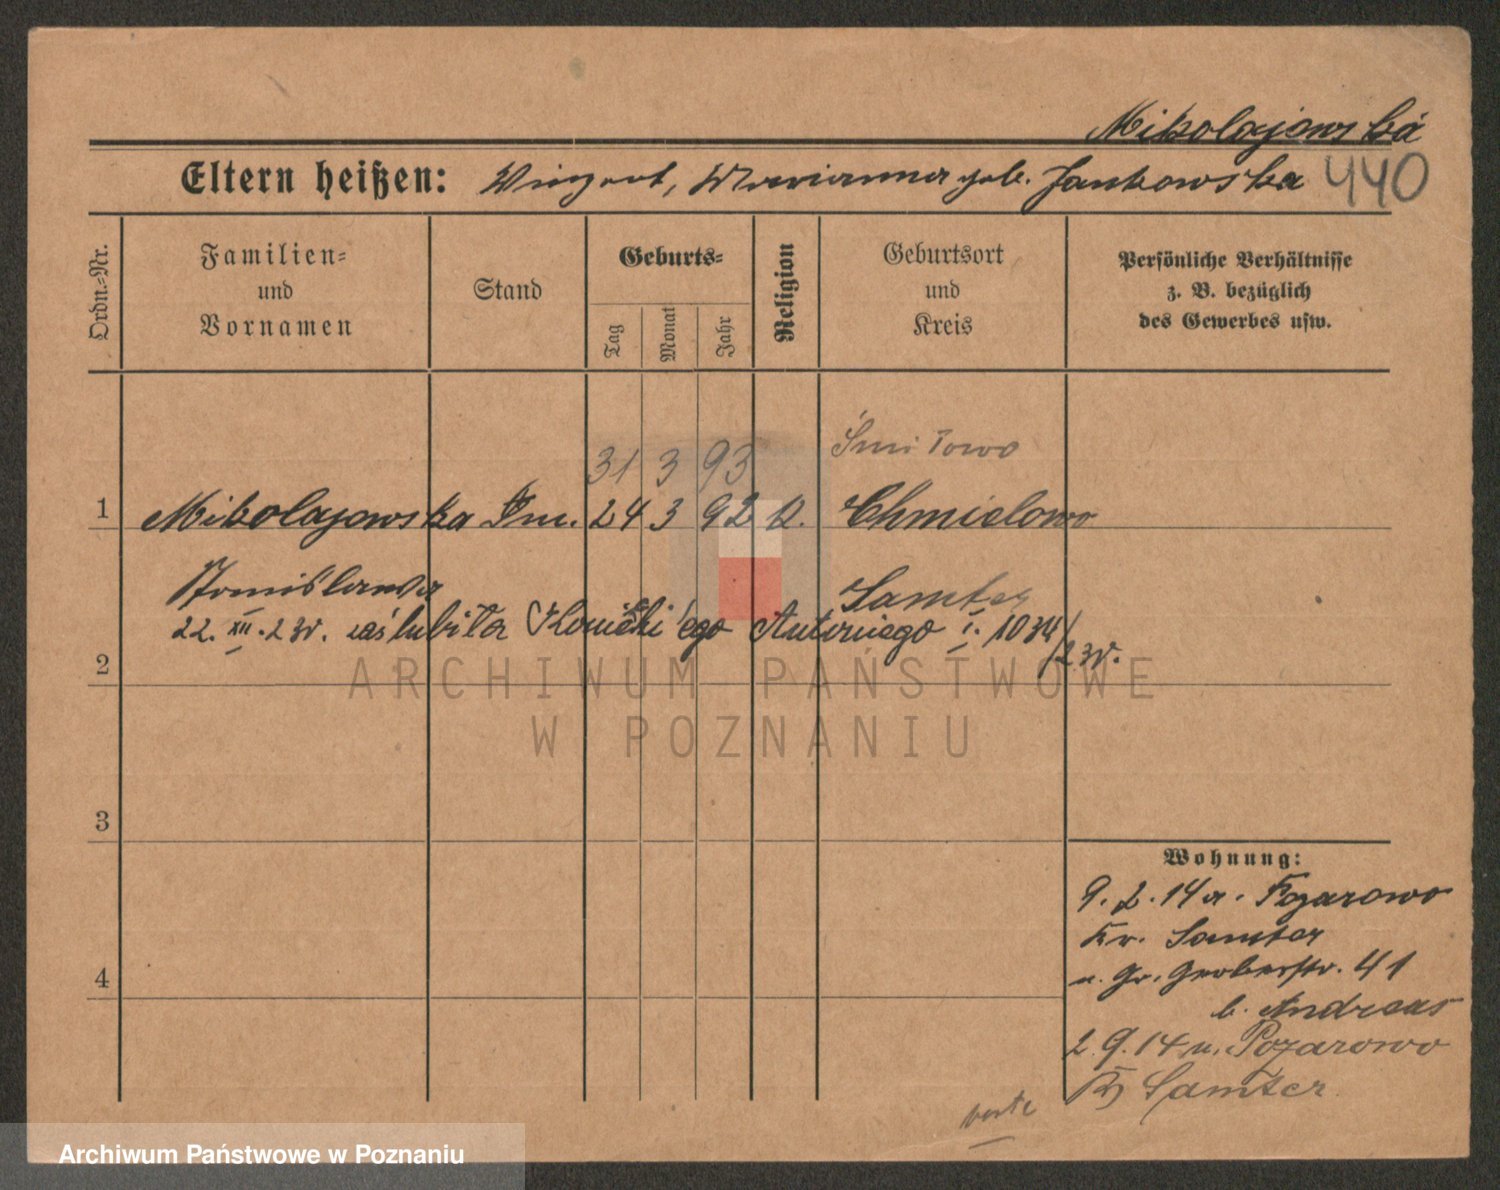 Mikolajewska
Eltern heißen: Vinzent, Marianna geb. Jankowska 440
Ordn.-Nr.
Familien-
und
Vornamen
Stand
Geburts-
Tag
Monat
Jahr
Religion
Geburtsort
und
Kreis
Persönliche Verhältnisse
z. B. bezüglich
des Gewerbes usw.
31 3 93 Śmiłowo
1 Mikolajewska 24 3 92 k. Chmielowo
Stanisława Samter
22. XII. 23r. zaślubiła Antoniego I. 1034/23r.
2
ARCHIWUM PAŃSTWOWE
W POZNANIU
3
4
Wohnung:
9. 2. 14 a.
Kr. Samter
n. Gr. Gerberstr. 41
b. Andreas
2. 9. 14 n. Pozarowo
Kr Samter
verte
Archiwum Państwowe w Poznaniu